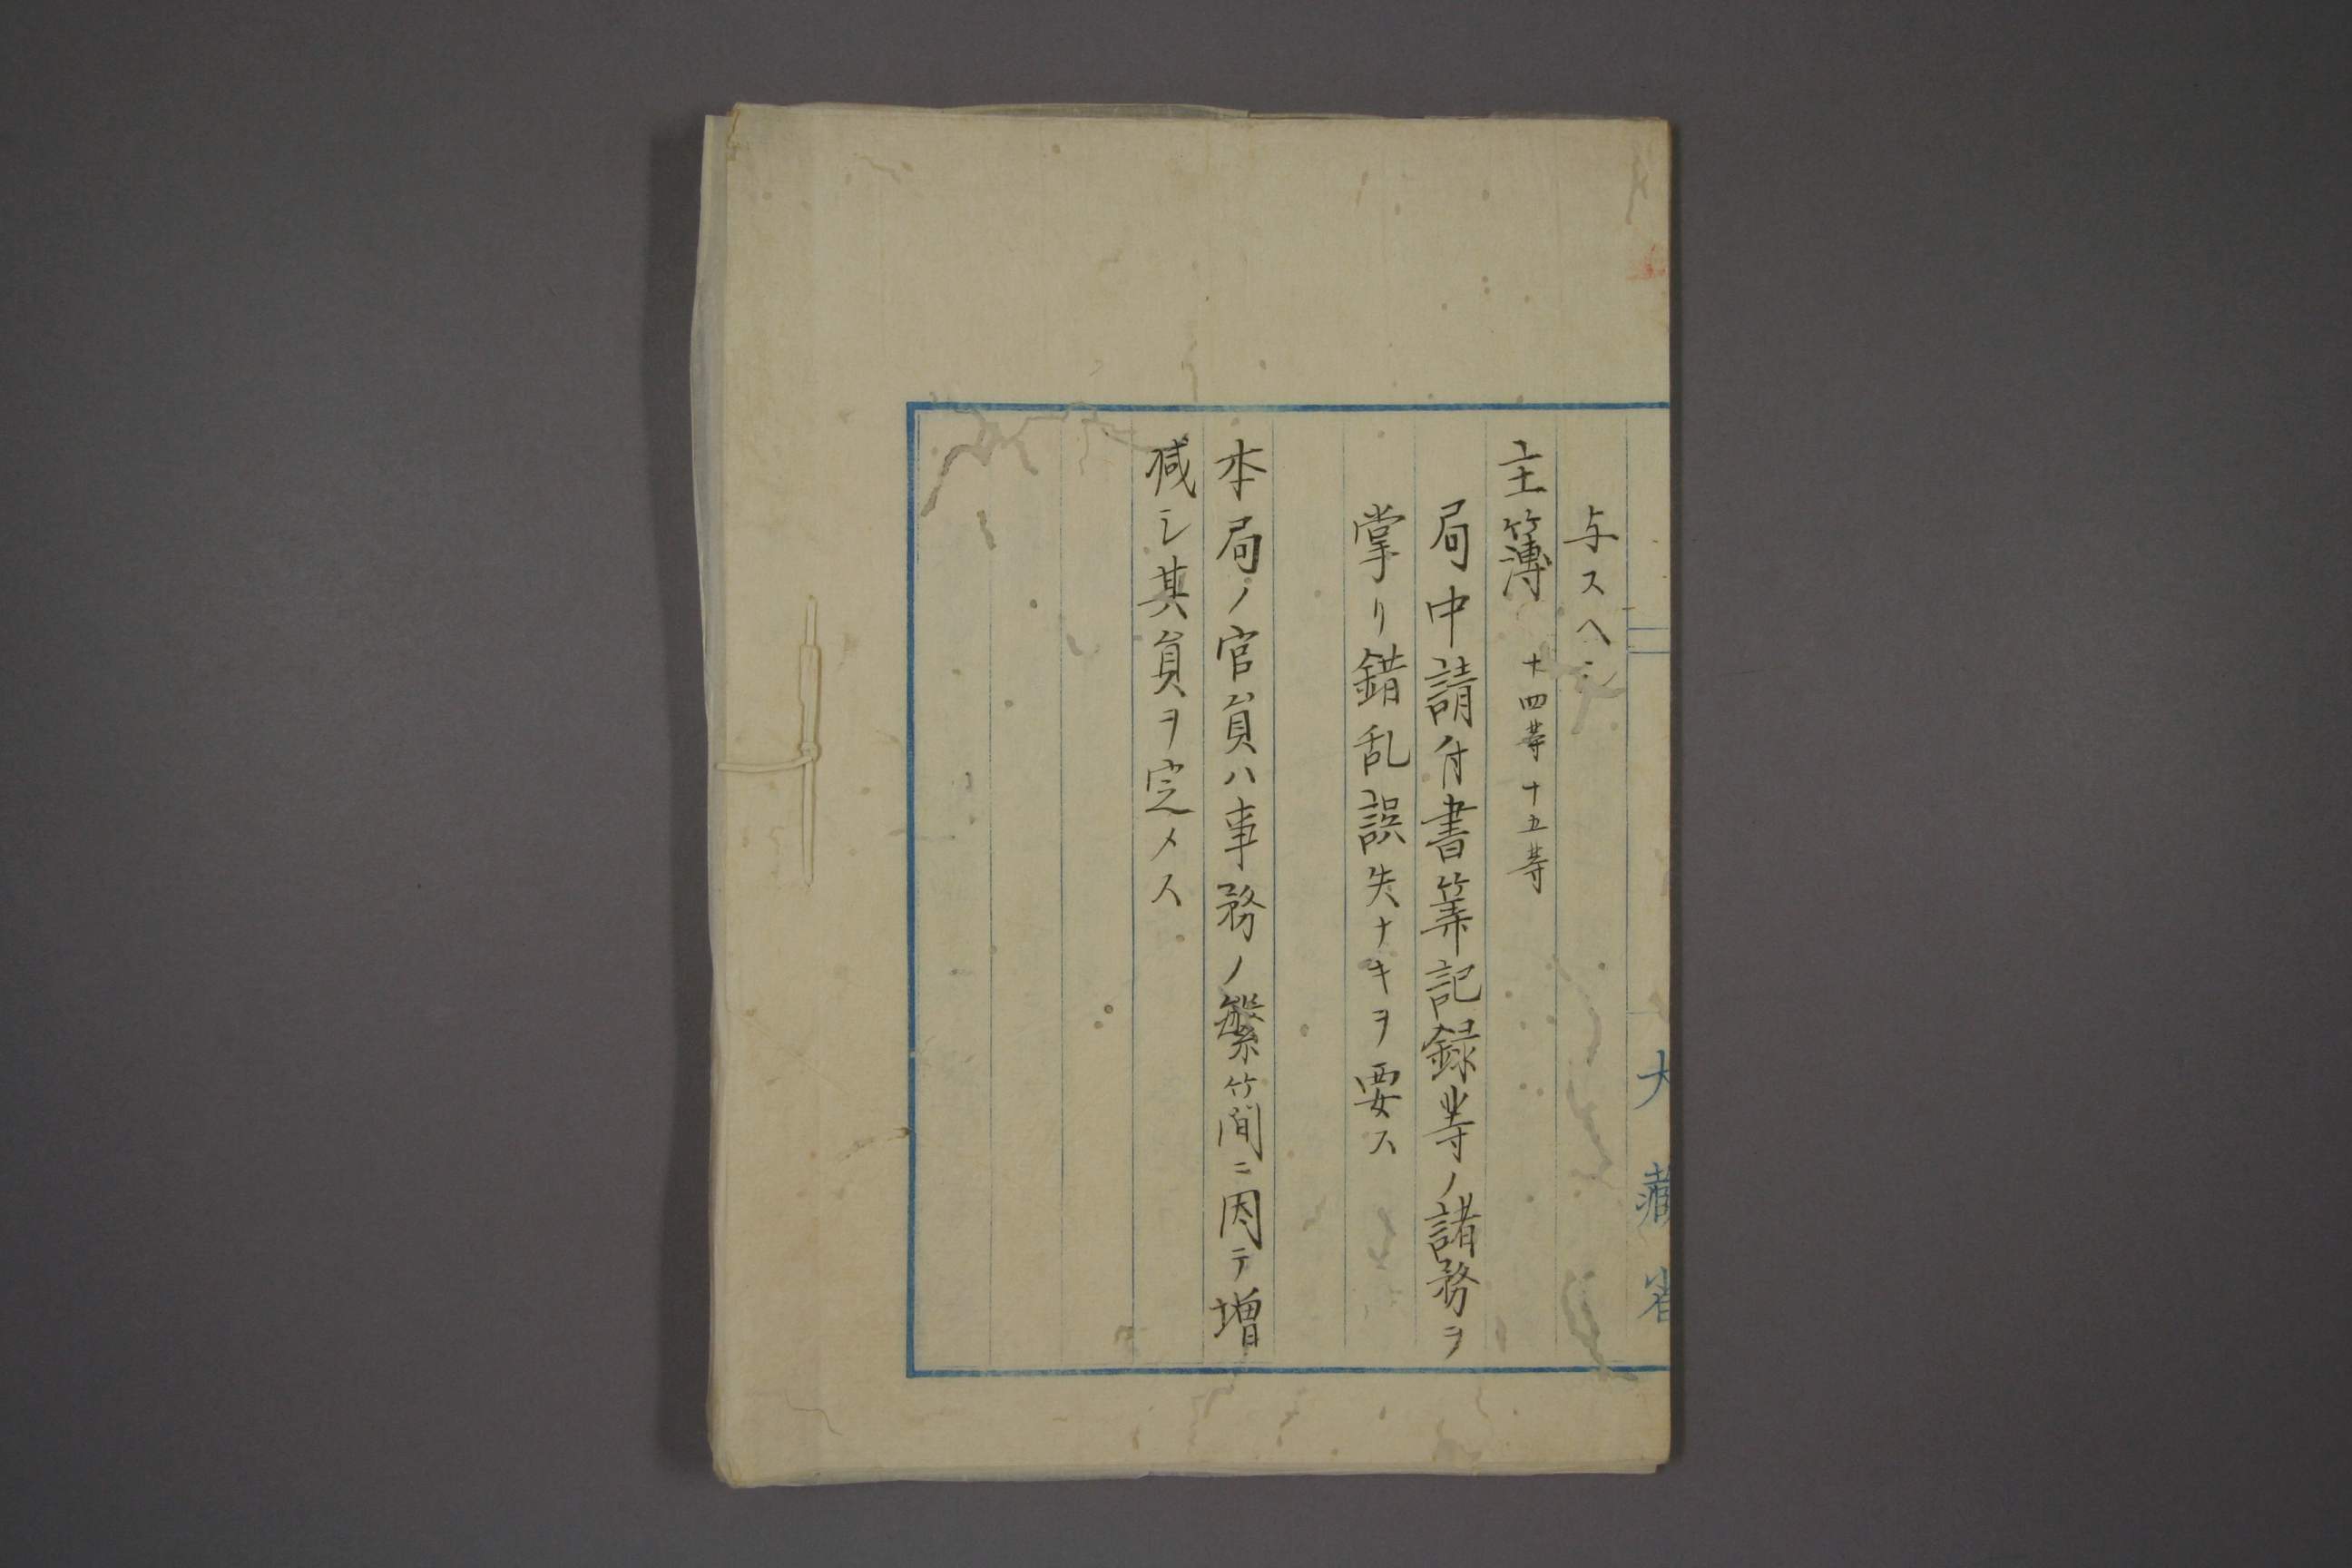 大藏省
与スヘシ
主簿 十四等十五等
局中請付書筭記録等ノ諸務ヲ
掌リ錯乱誤失ナキヲ要ス
本局ノ官員ハ事務ノ繁簡ニ因テ増
减シ其員ヲ定メス